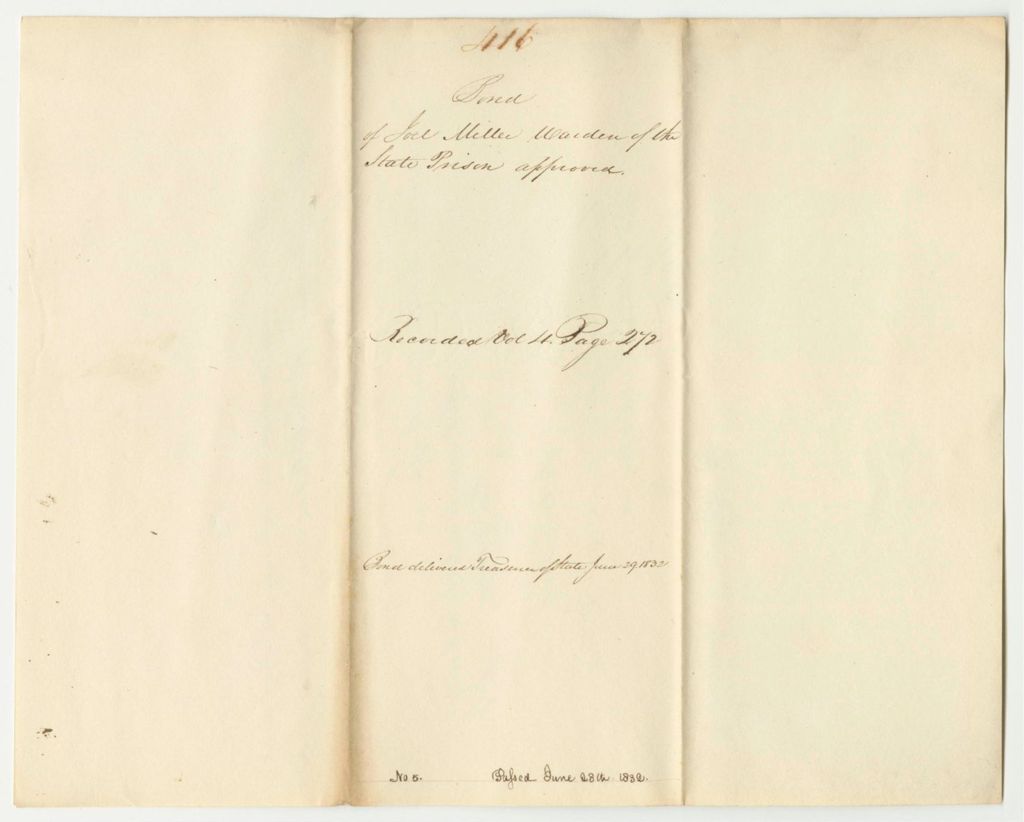 416
Bond
of Joel Miller Warden of the
State Prison approved.
Recorded Vol 4. Page 272
Bond delivered Treasurer of State June 29, 1832
No 5. Passed June 28th 1832.